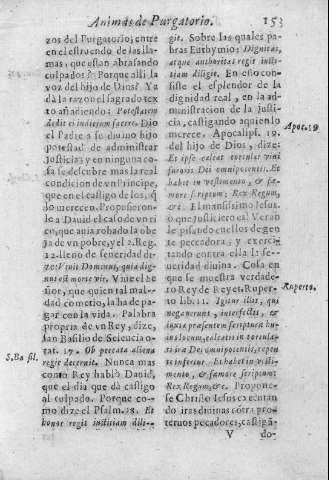 Animas de Purgatorio. 153
zos del Purgatorio; entre
en el estruendo de las lla-
mas, que estan abrasando
culpados? Porque alli la
voz del hijo de Dios? Ya
dà la razon el sagrado tex
to añadiendo: Potestatem
dedit ei iudicium facere. Dio
el Padre a su diuino hijo
potestad de administrar
justicia; y en ninguna co-
sa se descubre mas la real
condicion de vn Principe,
que en el castigo de los, q̃
lo merecen. Proponesero-
le a Dauid el caso de vn ri
co, que auia robado la obe
ja de vn pobre, y el 2. Reg.
12. lleno de seueridad di-
ze: Viuit Dominus, quia dig-
nus est mortis vir. Viue el Se
ñor, que quien tal mal-
dad cometio, la ha de pa-
gar con la vida. Palabra
propria de vn Rey, dize,
san Basilio de Seleucia o-
S. Ba sil.
rat. 17. Ob peccata aliena
regiè decernit. Nunca mas
como Rey hablò Dauid,
que el dia que dà castigo
al culpado. Porque co-
mo dize el Psalm. 28. Et
honor regis iustitiam dili-
git. Sobre las quales pa-
labras Euthymio: Dignitas,
atque authoritas regis iusti-
tiam diligit. En esto con-
siste el esplendor de la
dignidad real, en la ad-
ministracion de la justi-
cia, castigando a quien lo
merece. Apocalips. 19.
Apoc. 19
del hijo de Dios, dize:
Et ipse calcat torcular vini
furoris Dei omnipotentis. Et
habet in vestimento, & fœ-
more scriptum: Rex Regum,
&c. El mansissimo Iesus.
o que justiciero es! Verān
le pisando cuellos de gen
te pecadora, y exerci-
tando contra ella la se-
ueridad diuina. Cosa en
que se muestra verdade-
ro Rey de Reyes. Ruper-
Ruperto.
to lib. 11. Igitur illis, qui
negauerunt, interfectis, &
iuxta præsentem scriptura hu-
ius locum, calcatis in torcula-
ri ira Dei omnipotentis, repen
tè infertur. Et habet in vesti-
mento, & fœmore scriptum:
Rex Regum, &c. Propone-
se Christo Iesus executan
do iras diuinas cōtra pro-
teruos pecadores, castigā-
V do-